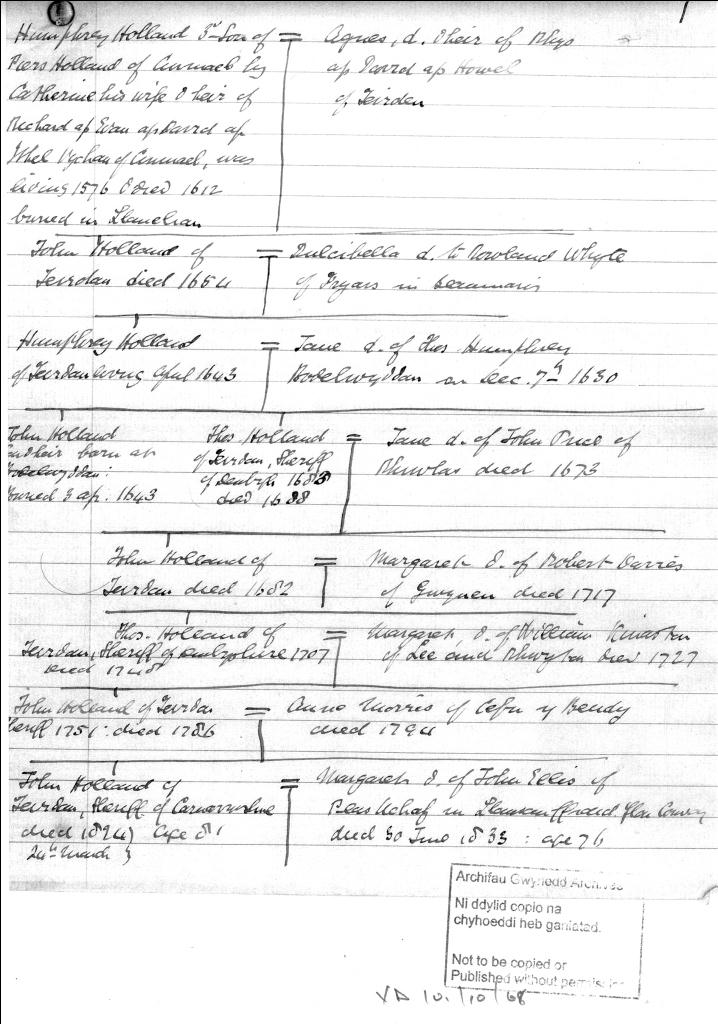 1
1
Humphrey Holland 3rd Son of = Agnes, d. & heir of Rhys
Piers Holland of Cinmael by ap David ap Howel
Catherine his wife & heir of of Teirdan
Richard ap Evan ap David ap
Ithel Vychan of Cinmael, was
living 1576 & died 1612
buried in Llanelian
John Holland of = Dulcibella d. to Rowland Whyte
Teirdan died 1654 of Fryars in Beaumaris
Humphrey Holland = Jane d. of Thos Humphrey
of Teirdan living April 1643 Bodelwyddan on Dec. 7th 1630
John Holland
and heir born at
Bodelwyddan:
buried 3 ap. 1643
Thos Holland = Jane d. of John Price of
of Teirdan, Sheriff Rhiwlas died 1673
of Denbigh
died 1688
John Holland of = Margaret d. of Robert Davies
Teirdan died 1682 of Gwysaney died 1717
Thos. Holland of = Margaret, d. of William
Teirdan, Sheriff of Denbyshire 1707 of Lee and died 1727
died
John Holland of Teirdan = Anne Morris of Cefn y
Sheriff 1751: died 1786 died 1794
John Holland of = Margaret d. of John Ellis of
Teirdan, Sheriff of Carnarvonshire Uchaf in
died 1824) age 81 died 30 June 1835: age 76
24th March )
Archifau Gwynedd Archives
Ni ddylid copio na
chyhoeddi heb ganiatad.
Not to be copied or
Published without permission
10/10/68